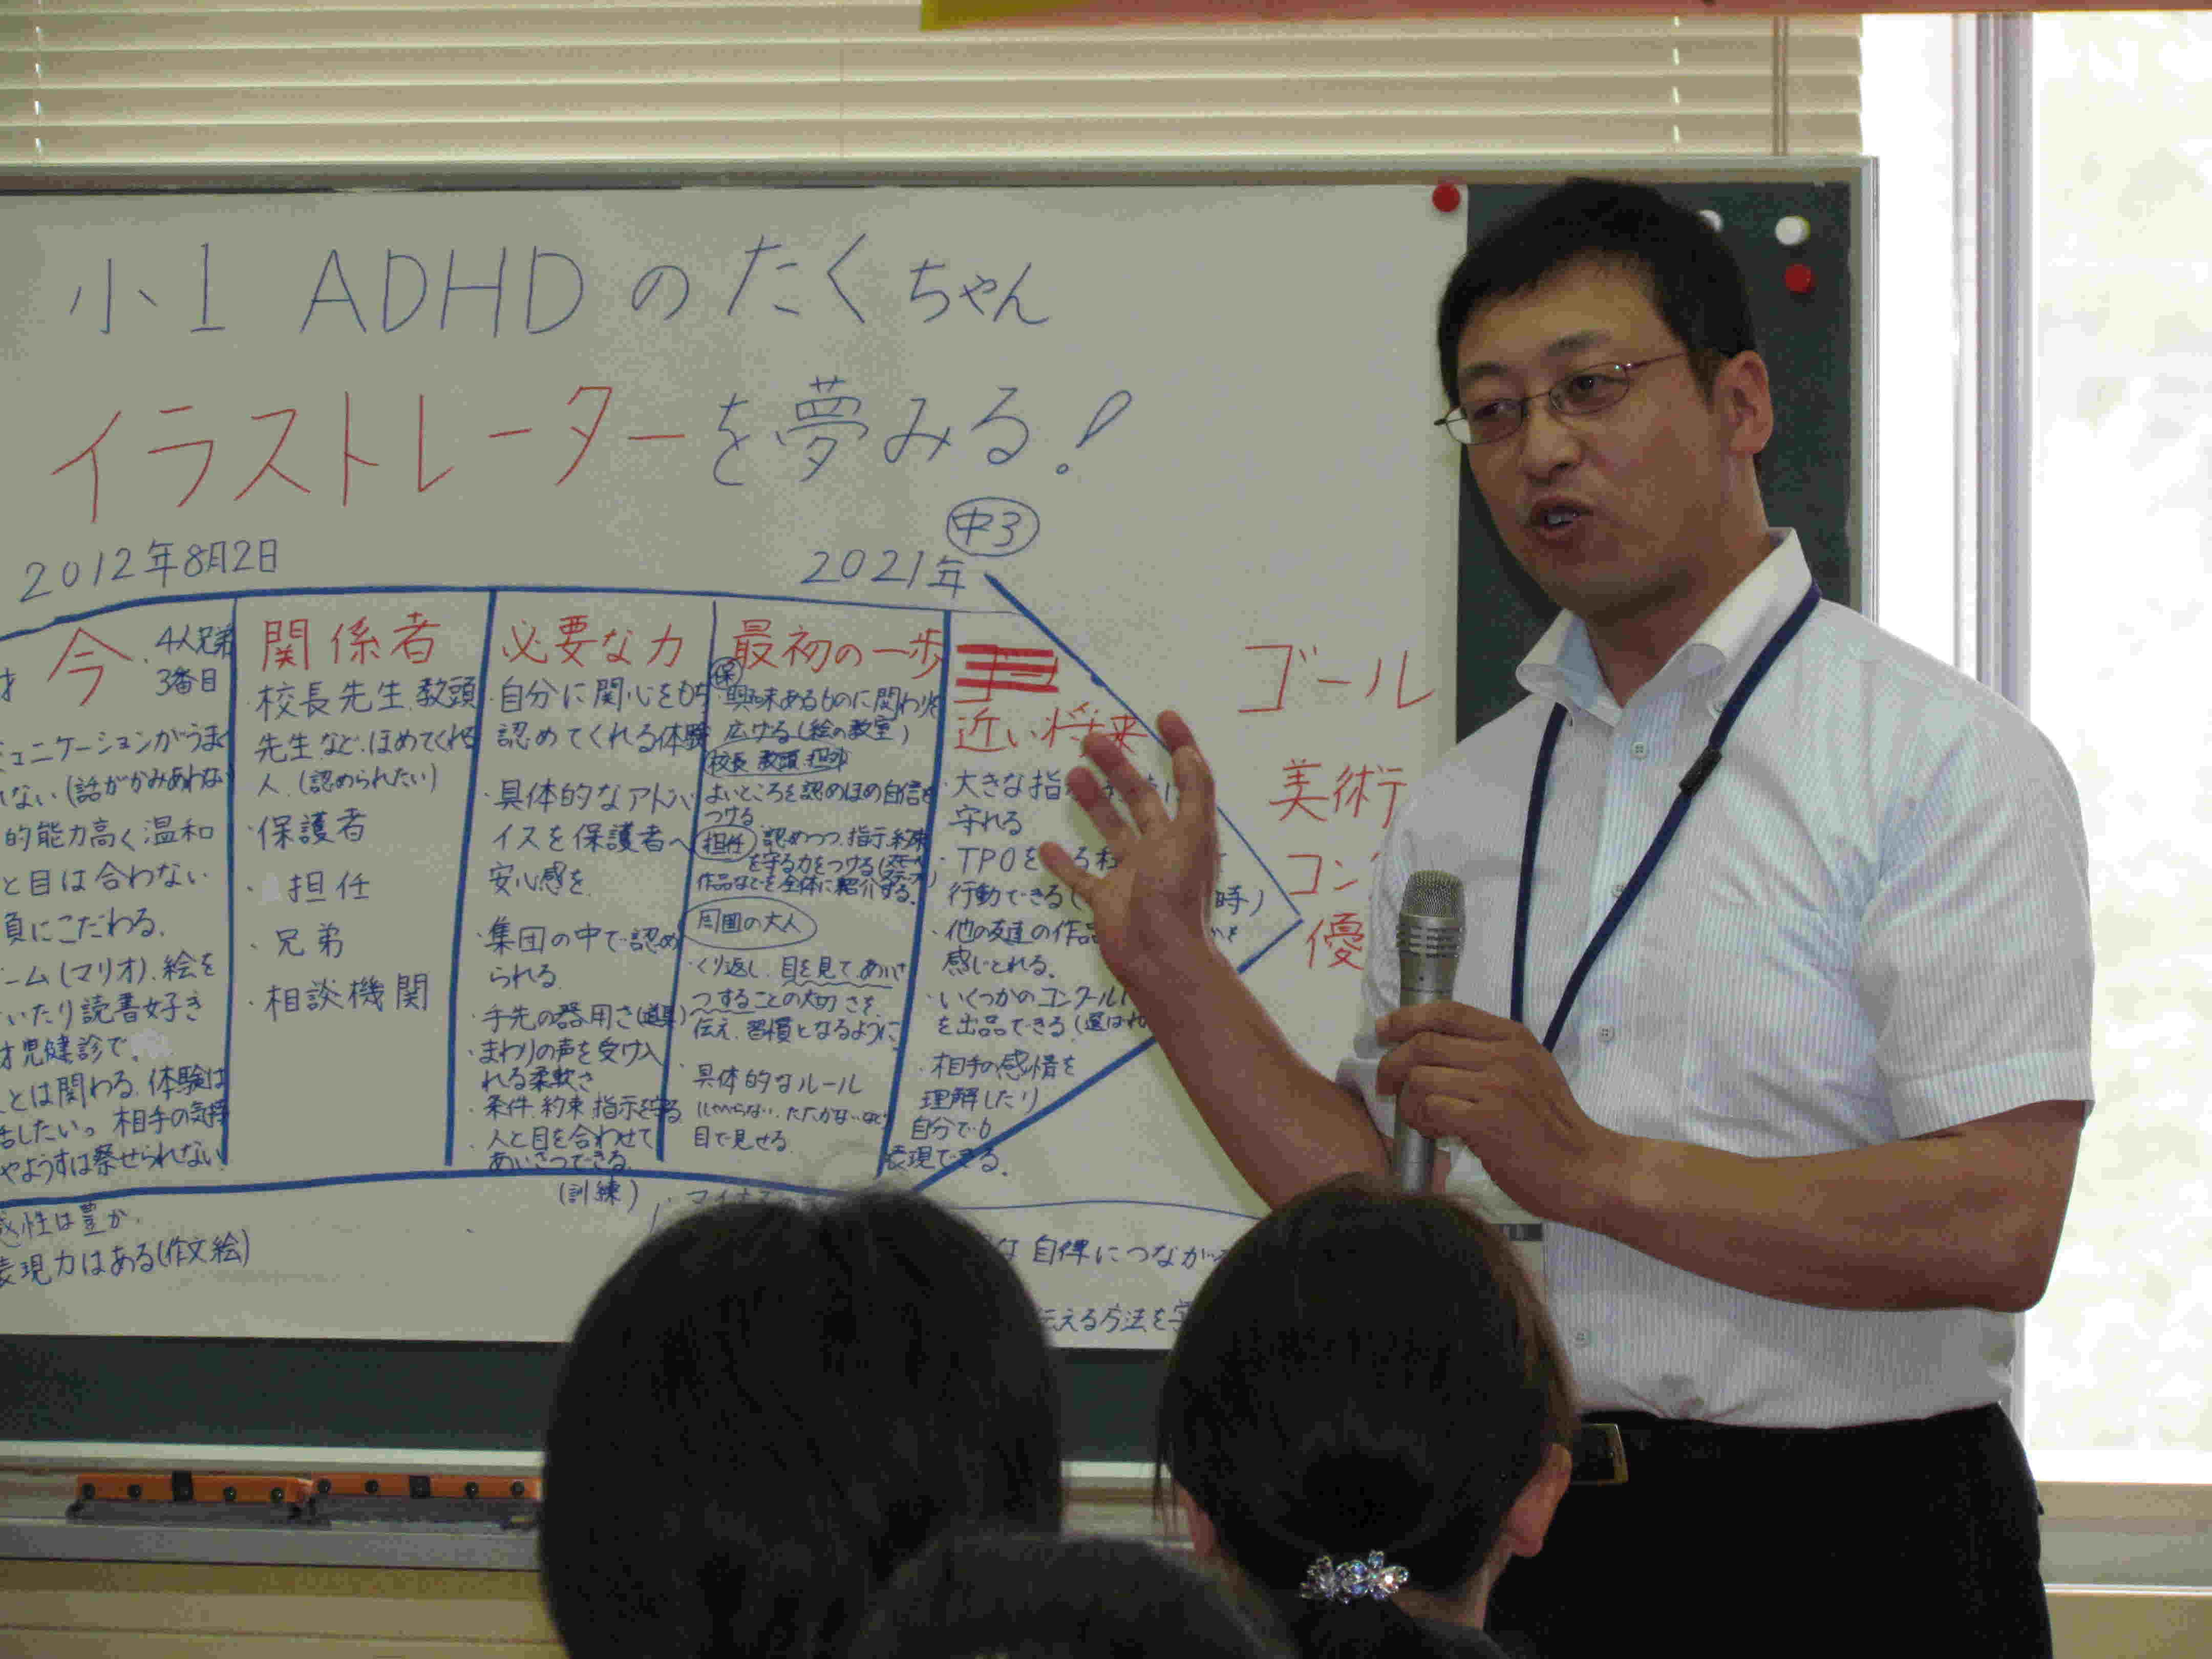 小1 ADHDのたくちゃん
イラストレーターを夢みる!
2012年8月2日
2021年
中3
今
4人兄弟
3番目
的能力高く温和
と目は合わない
負にこだわる.
ーム(マリオ).絵を
いたり読書好き
才児健診で.
とは関わる.体験は
相手の気持
やようすは察せられない
関係者
・校長先生.教頭
先生など.ほめてくれる
人.(認められたい)
・保護者
・担任
・兄弟
・相談機関
必要な力
・自分に関心をもち
認めてくれる体験
・具体的なアドバ
イスを保護者へ
安心感を
・集団の中で認め
られる
・手先の器用さ(道具)
・まわりの声を受け入
れる柔軟さ
・条件.約束.指示を守る
・人と目を合わせて
あいさつできる.
(訓練)
最初の一歩
保
興味あるものに関わりを
広げる(絵の教室)
校長.教頭.担任
よいところを認めほめ自信を
つける
担任
認めつつ.指示.約束
を守る力をつける
作品などを全体に紹介する.
周囲の大人
・くり返し.目を見て.あいさ
つすることの大切さを.
伝え.習慣となるように
・具体的なルール
目で見せる
近い将来
・大きな指
守れる
・TPOを
行動できる(
時)
・他の友達の作品
感じとれる.
・いくつかのコンクールに
を出品できる(選ばれ
・相手の感情を
理解したり
自分でも
表現できる.
ゴール
美術
コン
優
感性は豊か.
表現力はある(作文絵)
自律につなが
伝える方法を